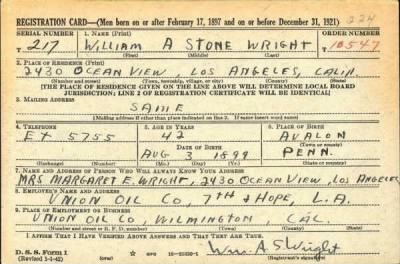 REGISTRATION CARD—(Men born on or after February 17, 1897 and on or before December 31, 1921) 224
SERIAL NUMBER 1. NAME (Print) ORDER NUMBER
T 217 WILLIAM A STONE WRIGHT 10547
(First) (Middle) (Last)
2. PLACE OF RESIDENCE (Print)
2430 OCEAN VIEW LOS ANGELES, CALIN.
(Number and street) (Town, township, village, or city) (County) (State)
[THE PLACE OF RESIDENCE GIVEN ON THE LINE ABOVE WILL DETERMINE LOCAL BOARD
JURISDICTION; LINE 2 OF REGISTRATION CERTIFICATE WILL BE IDENTICAL]
3. MAILING ADDRESS
SAME
[Mailing address if other than place indicated on line 2. If same insert word same]
4. TELEPHONE 5. AGE IN YEARS 6. PLACE OF BIRTH
EX 5755 42 AVALON
DATE OF BIRTH (Town or county)
AUG 3 1899 PENN.
(Exchange) (Number) (Mo.) (Day) (Yr.) (State or country)
7. NAME AND ADDRESS OF PERSON WHO WILL ALWAYS KNOW YOUR ADDRESS
MRS MARGARET E. WRIGHT, 2430 OCEAN VIEW, LOS ANGELES
8. EMPLOYER'S NAME AND ADDRESS
UNION OIL CO, 7TH & HOPE, L.A.
9. PLACE OF EMPLOYMENT OR BUSINESS
UNION OIL CO, WILMINGTON, CAL.
(Number and street or R. F. D. number) (Town) (County) (State)
I AFFIRM THAT I HAVE VERIFIED ABOVE ANSWERS AND THAT THEY ARE TRUE.
D. S. S. Form 1 Wm. A S Wright
(Revised 1-1-42) (Registrant's signature)